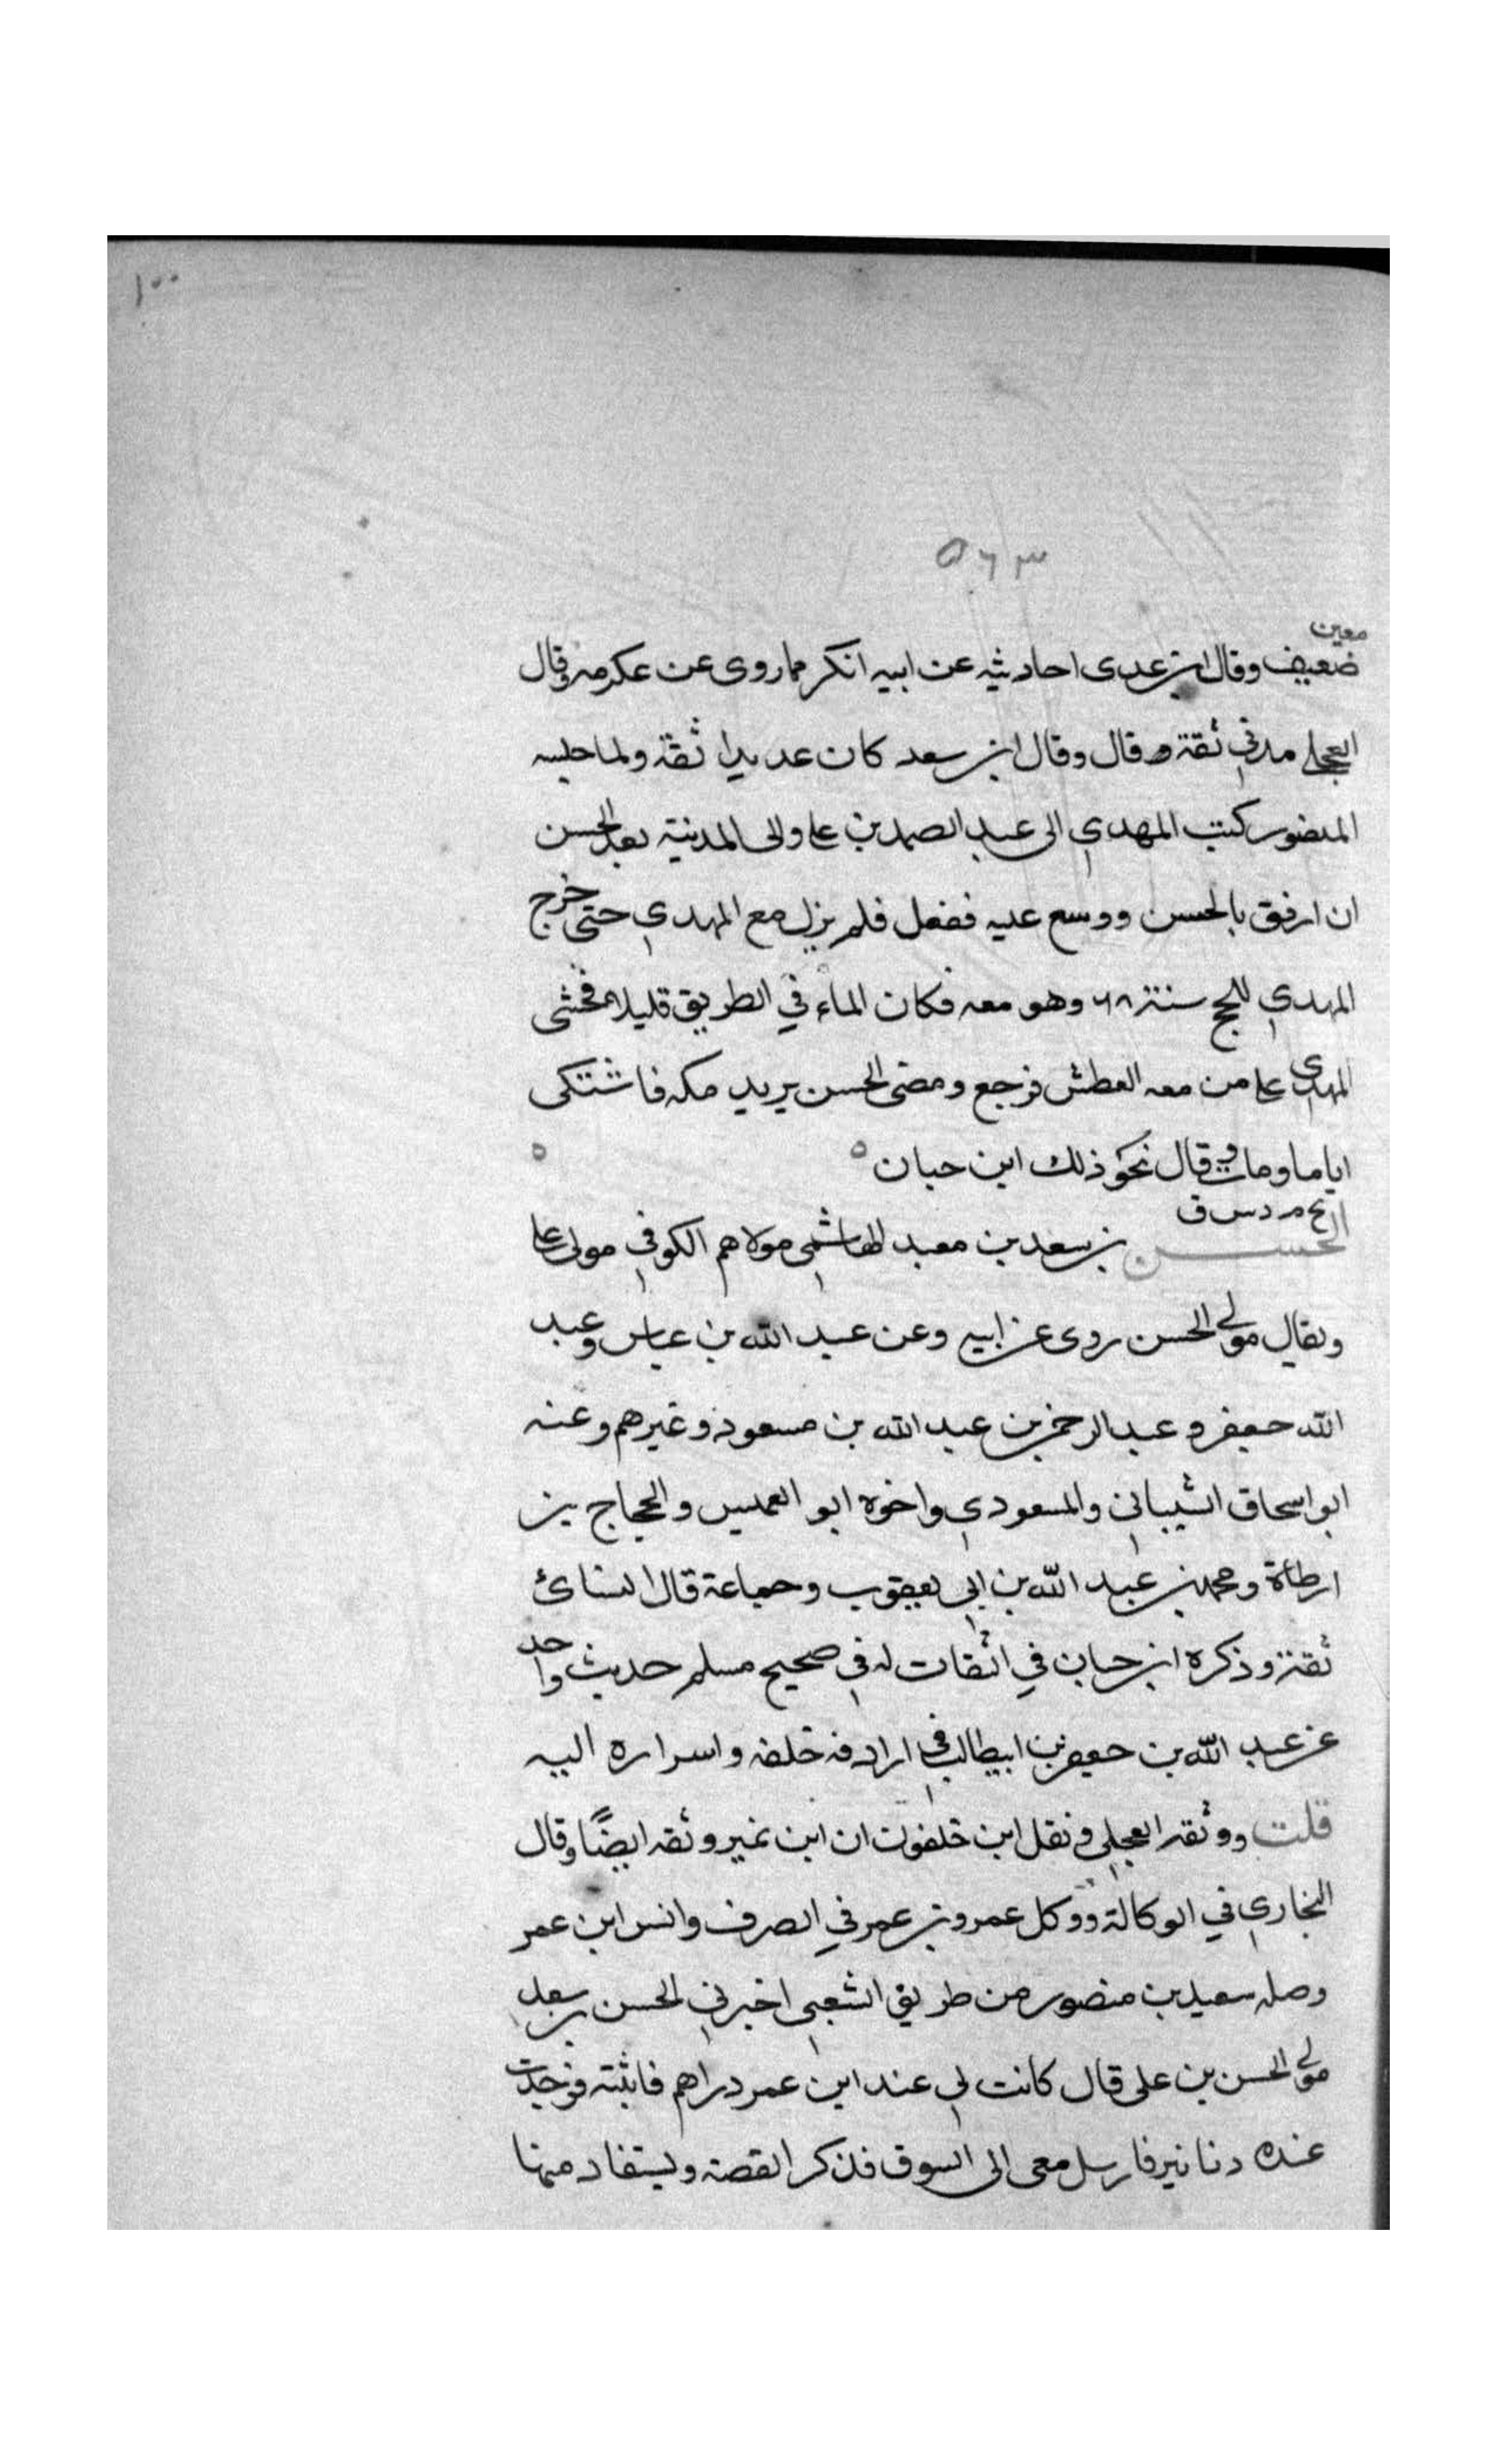 ١٠٠
٥٦٣
معين
ضعيف وقال ابن عدى احاديثه عن ابيه انكر مما روى عن عكرمه وقال
العجلي مدني ثقة وقال وقال ابن سعد كان عديدا ثقة ولما حبسه
المنصور كتب المهدي الى عبد الصمد بن على والى المدينة بعد الحسن
ان ارفق بالحسن ووسع عليه ففعل فلم يزل مع المهدي حتى خرج
المهدي للحج سنة ٦٨ وهو معه فكان الماء في الطريق قليلا فخشى
المهدي على من معه العطش فرجع ومضى الحسن يريد مكه فاشتكى
اياما ومات وقال نحو ذلك ابن حبان ٥ ٥
م د س ق
الحسن بن سعد بن معبد الهاشمي مولاهم الكوفي مولى على
ويقال مولى الحسن روى عن ابيه وعن عبد الله بن عباس وعبد
الله جعفر و عبد الرحمن بن عبد الله بن مسعود وغيرهم وعنه
ابو اسحاق الشيباني والمسعودي واخوه ابو العميس والحجاج بن
ارطاة ومحمد بن عبد الله بن ابي يعقوب وجماعة قال النسائ
ثقة وذكره ابن حبان في الثقات له في صحيح مسلم حديث واحد
عن عبد الله بن جعفر بن ابيطالب في اردافه خلفه واسراره اليه
قلت ووثقه العجلي ونقل ابن خلفون ان ابن نمير وثقه ايضًا وقال
البخاري في الوكالة ووكل عمرو بن عمر في الصرف وانس ابن عمر
وصله سعيد بن منصور من طريق الشعبي اخبرني الحسن بن سعد
مولى الحسن بن على قال كانت لي عند ابن عمر دراهم فاتيته فوجدت
عنده دنانير فارسل معى الى السوق فذكر القصة ويستفاد منها